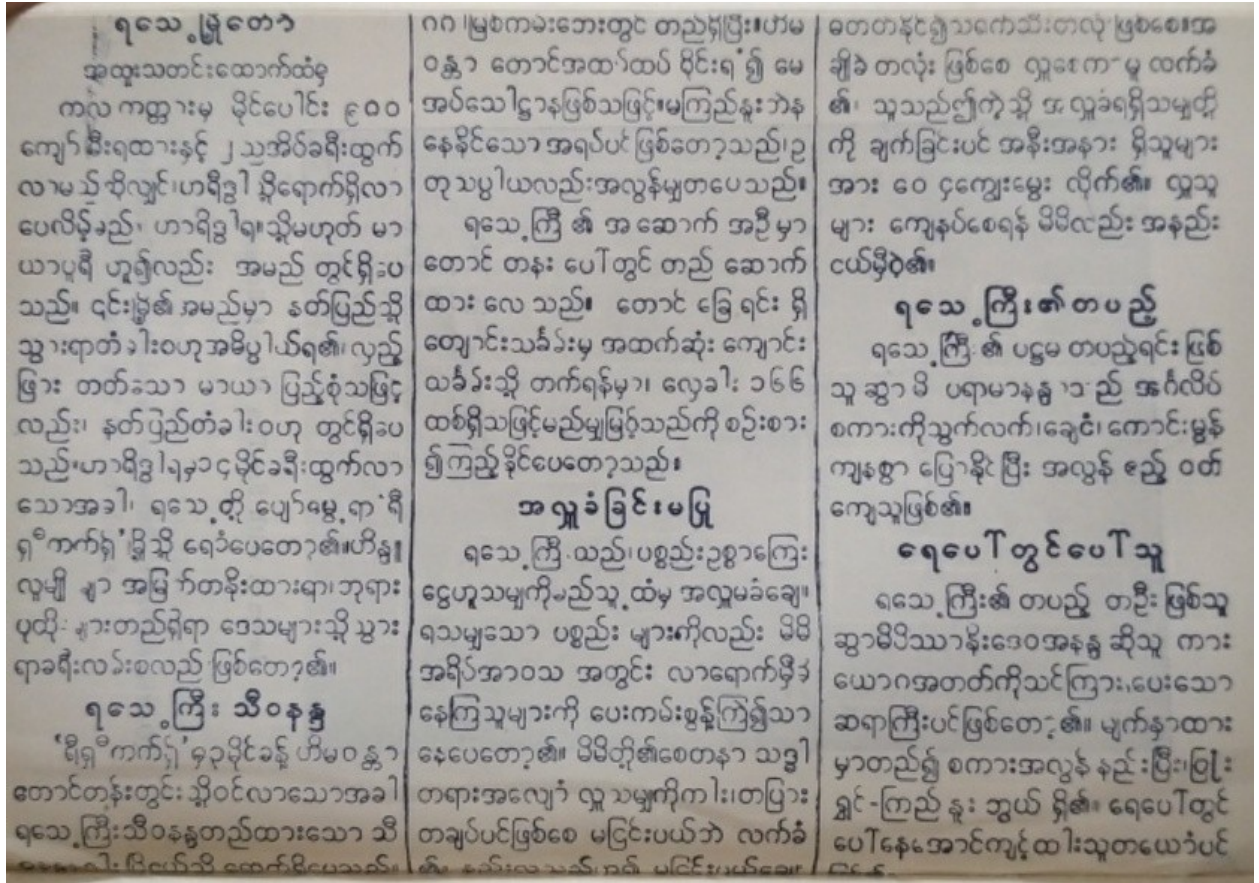 ရသေ့မြို့တော်
အထူးသတင်းထောက်ထံမှ
ကလကတ္တားမှ မိုင်ပေါင်း ၉၀၀
ကျော် မီးရထားနှင့် ၂ ညအိပ်ခရီးထွက်
လာမည်ဆိုလျှင်၊ဟရိဒွါသို့ရောက်ရှိလာ
ပေလိမ့်မည်၊ ဟာရိဒွါရ။သို့မဟုတ် မာ
ယာပူရီ ဟူ၍လည်း အမည် တွင်ရှိပေ
သည်။ ၎င်းမြို့၏အမည်မှာ နတ်ပြည်သို့
သွားရာတံခါးဝဟုအဓိပ္ပါယ်ရ၏၊လှည့်
ဖြား တတ်သော မာယာ ပြည့်စုံသဖြင့်
လည်း၊ နတ်ပြည်တံခါးဝဟု တွင်ရှိပေ
သည်။ဟာရိဒွါရမှ၁၄မိုင်ခရီးထွက်လာ
သောအခါ၊ ရသေ့တို့ ပျော်မွေ့ရာ 'ရီ
ရှီကက်ရှ်'မြို့သို့ ရောံပေတော့၏။ဟိန္ဒူ
လူမျိုးများ အမြတ်တနိုးထားရာ၊ဘုရား
ပုထိုးများတည်ရှိရာ ဒေသများသို့သွား
ရာခရီးလမ်းစလည် ဖြစ်တော့၏။
ရသေ့ကြီး သီဝနန္ဒ
'ရီရှီကက်ရှ်'မှ၃မိုင်ခန့် ဟိမဝန္တာ
တောင်တန်းတွင်းသို့ဝင်လာသောအခါ
ရသေ့ကြီးသီဝနန္ဒတည်ထားသော သီ
ဂင်္ဂါမြစ်ကမ်းဘေးတွင် တည်ရှိပြီး။ဟိမ
ဝန္တာ တောင်အထပ်ထပ် ဝိုင်းရံ၍ မေ
အပ်သေါဋ္ဌာနဖြစ်သဖြင့်။မကြည်နူးဘဲန
နေနိုင်သော အရပ်ပင်ဖြစ်တော့သည်၊ဥ
တုသပ္ပါယလည်းအလွန်မျှတပေသည်။
ရသေ့ကြီး၏ အဆောက် အဦမှာ
တောင် တန်း ပေါ်တွင် တည် ဆောက်
ထား လေ သည်။ တောင် ခြေ ရင်း ရှိ
ကျောင်းသင်္ခမ်းမှ အထက်ဆုံး ကျောင်း
သင်္ခမ်းသို့ တက်ရန်မှာ၊ လှေခါး ၁၆၆
ထစ်ရှိသဖြင့်မည်မျှမြင့်သည်ကို စဉ်းစား
၍ကြည့်နိုင်ပေတော့သည်။
အလှူခံခြင်းမပြု
ရသေ့ကြီးသည်၊ပစ္စည်းဥစ္စာကြေး
ငွေဟူသမျှကိုမည်သူ့ထံမှ အလှူမခံချေ။
ရသမျှသော ပစ္စည်း များကိုလည်း မိမိ
အရိပ်အာဝသ အတွင်း လာရောက်မှီခို
နေကြသူများကို ပေးကမ်းစွန့်ကြဲ၍သာ
နေပေတော့၏။ မိမိတို့၏စေတနာ သဒ္ဒါ
တရားအလျောံ လှူသမျှကိုကါး၊တပြား
တချပ်ပင်ဖြစ်စေ မငြင်းပယ်ဘဲ လက်ခံ
မတတ်နိုင်၍သင်္ကေသီးတလုံး ဖြစ်စေ။အ
ချိုခဲ တလုံး ဖြစ်စေ လှူစေကာမူ လက်ခံ
၏၊ သူသည်ဤကဲ့သို့ အလှူခံရရှိသမျှတို့
ကို ချက်ခြင်းပင် အနီးအနား ရှိသူများ
အား ဝေ ငှကျွေးမွေး လိုက်၏။ လှူသူ
များ ကျေနပ်စေရန် မိမိလည်း အနည်း
ငယ်မှီဝဲ၏။
ရသေ့ကြီး၏တပည့်
ရသေ့ကြီး၏ ပဋ္ဌမ တပည့်ရင်း ဖြစ်
သူ ဆွာမိ ပရာမာနန္ဒာသည် အင်္ဂလိပ်
စကားကိုသွက်လက်၊ချောငံ၊ကောင်းမွန်
ကျနစွာ ပြောနိုင်ပြီး အလွန် ဧည့် ဝတ်
ကျေသူဖြစ်၏။
ရေပေါ်တွင်ပေါ်သူ
ရသေ့ကြီး၏ တပည့် တဦး ဖြစ်သူ
ဆွာမိဝိဿာနိုးဒေဝအနန္ဒ ဆိုသူ ကား
ယောဂအတတ်ကိုသင်ကြား၊ပေးသော
ဆရာကြီးပင်ဖြစ်တော့၏။ မျက်နှာထား
မှာတည်၍ စကားအလွန် နည်းပြီး၊ပြုံး
ရွှင်-ကြည် နူး ဘွယ် ရှိ၏။ ရေပေါ်တွင်
ပေါ်နေအောင်ကျင့်ထါးသူတယောံပင်